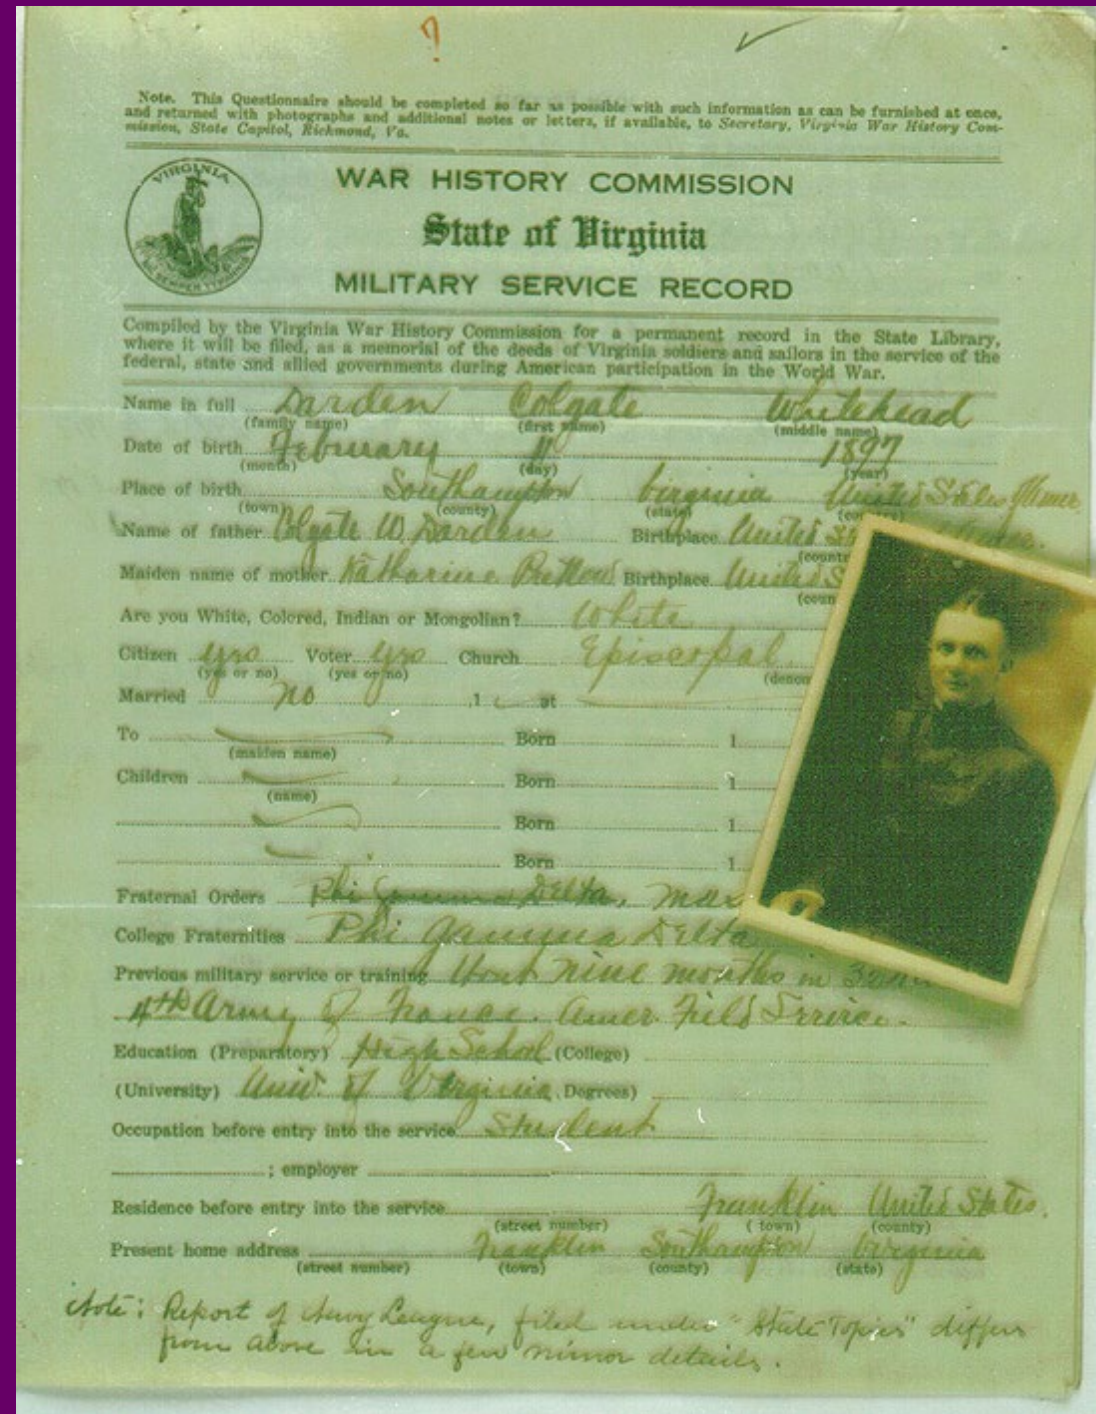 ?
Note. This Questionnaire should be completed so far as possible with such information as can be furnished at once,
and returned with photographs and additional notes or letters, if available, to Secretary, Virginia War History Com-
mission, State Capitol, Richmond, Va.
VIRGINIA
SIC SEMPER TYRANNIS
WAR HISTORY COMMISSION
State of Virginia
MILITARY SERVICE RECORD
Compiled by the Virginia War History Commission for a permanent record in the State Library,
where it will be filed, as a memorial of the deeds of Virginia soldiers and sailors in the service of the
federal, state and allied governments during American participation in the World War.
Name in full Darden Colgate Whitehead
(family name) (first name) (middle name)
Date of birth February 11 1897
(month) (day) (year)
Place of birth Southampton Virginia United States
(town) (county) (state)
Name of father Colgate W. Darden Birthplace United
Maiden name of mother Katharine Pretlow Birthplace United
Are you White, Colored, Indian or Mongolian? White
Citizen yes Voter yes Church Episcopal
(yes or no) (yes or no) (denom
Married no , 1 at
To Born 1
(maiden name)
Children Born 1
(name)
Born 1
Born 1
Fraternal Orders Phi Gamma Delta,
College Fraternities Phi Gamma Delta
Previous military service or training About nine months in
4th Army of France. Amer Field Service.
Education (Preparatory) High School (College)
(University) Univ. of Virginia Degrees)
Occupation before entry into the service Student
; employer
Residence before entry into the service Franklin United States.
(street number) (town) (county)
Present home address Franklin Southampton Virginia
(street number) (town) (county) (state)
Note: Report of Navy League, filed under "State Topics" differs
from above in a few minor details.